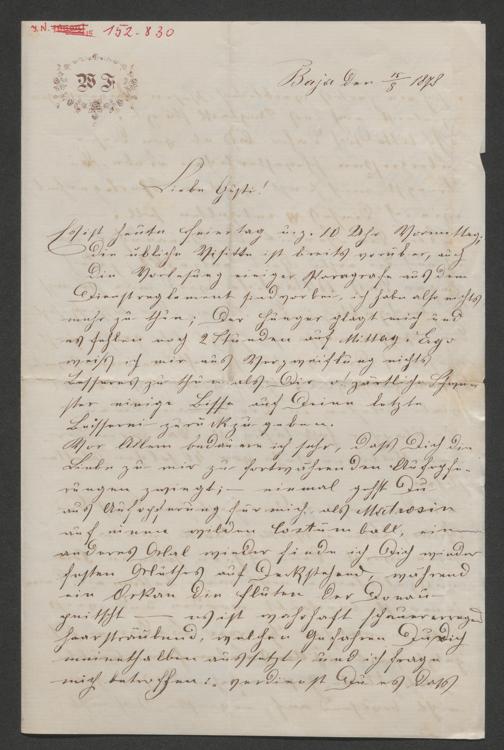 I.N. 152.830
WF
Baja den 15/8 1878
Liebe Gusti!
Es ist heute Feiertag u. z. 10 Uhr Vormittag;
die übliche Visitte ist breits vorüber, auch
die Vorlesung einiger Paragrafe aus dem
Dienstreglement sind vorbei, ich habe also nichts
mehr zu thun; der Hunger plagt mich und
es fehlen noch 2 Stunden auf Mittag. Ergo
weiß ich mir aus Verzweiflung nichts
besseres zu thun als Dir o zärtliche Schwe-
ster einige Bisse auf Deine letzte
Beisserei zurückzugeben.
Vor Allem bedauere ich sehr, daß Dich die
Liebe zu mir zu fortwährenden Aufopfe-
rungen zwingt; – einmal gehst Du
aus Aufopferung für mich als Matrosin
auf einen wilden Costümball, ein
anderes Mal wieder finde ich Dich wieder
festen Muthes auf Deck stehend, während
ein Orkan die Fluten der Donau
peitscht – es ist wahrhaft schauererregend
haarsträubend, welchen Gefahren Du Dich
meinethalben aussetzt, und ich frage
mich betroffen: verdienst Du es daß